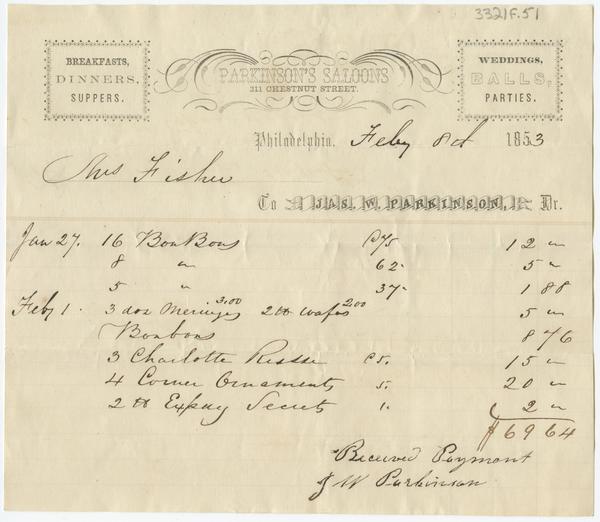 3321F.51
BREAKFASTS,
DINNERS,
SUPPERS.
PARKINSON'S SALOONS
311 CHESTNUT STREET.
WEDDINGS,
BALLS,
PARTIES.
Philadelphia, Feby 8d 1853
Mrs Fisher
To JAS. W. PARKINSON, Dr.
Jan 27. 16 BonBons @75 12 "
8 " 62 5 "
5 " 37 1 88
Feby 1. 3 doz Meringes 3.00 2 lb wafes 2.00 5 "
Bonbons 8 76
3 Charlotte Russe @5. 15 "
4 Corner Ornaments 5. 20 "
2 lb Secrets 1. 2 "
$69 64
Received Payment
J W Parkinson